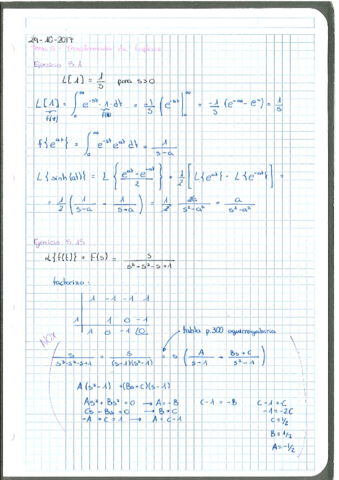 24-10-2017
Tema 5 - Transformadas de Laplace
Ejercicio 5.1
L[1] = 1/s para s>0
L[1] = ∫₀^∞ e^-st · 1 · dt = -1/s (e^-st |₀^∞ = -1/s (e^-∞ - e^0) = 1/s
f(t)
f{e^at} = ∫₀^∞ e^-st e^at dt = 1/(s-a)
L{sinh(at)} = L{(e^at - e^-at)/2} = 1/2 [L{e^at} - L{e^-at}] =
= 1/2 (1/(s-a) - 1/(s+a)) = 1/2 · 2a/(s²-a²) = a/(s²-a²)
Ejercicio 5.15
L{f(t)} = F(s) = s/(s³-s²-s+1)
factorizo:
1 -1 -1 1
1 1 0 -1
1 0 -1 0
tabla p.300
s/(s³-s²-s+1) = s/((s-1)(s²-1)) = s (A/(s-1) + (Bs+C)/(s²-1))
A(s²-1) + (Bs+C)(s-1)
As² + Bs² = 0 → A = -B
Cs - Bs = 0 → B = C
-A + C = 1 → A = C-1
C-1 = -B
C-1 = -C
-1 = -2C
C = 1/2
B = 1/2
A = -1/2